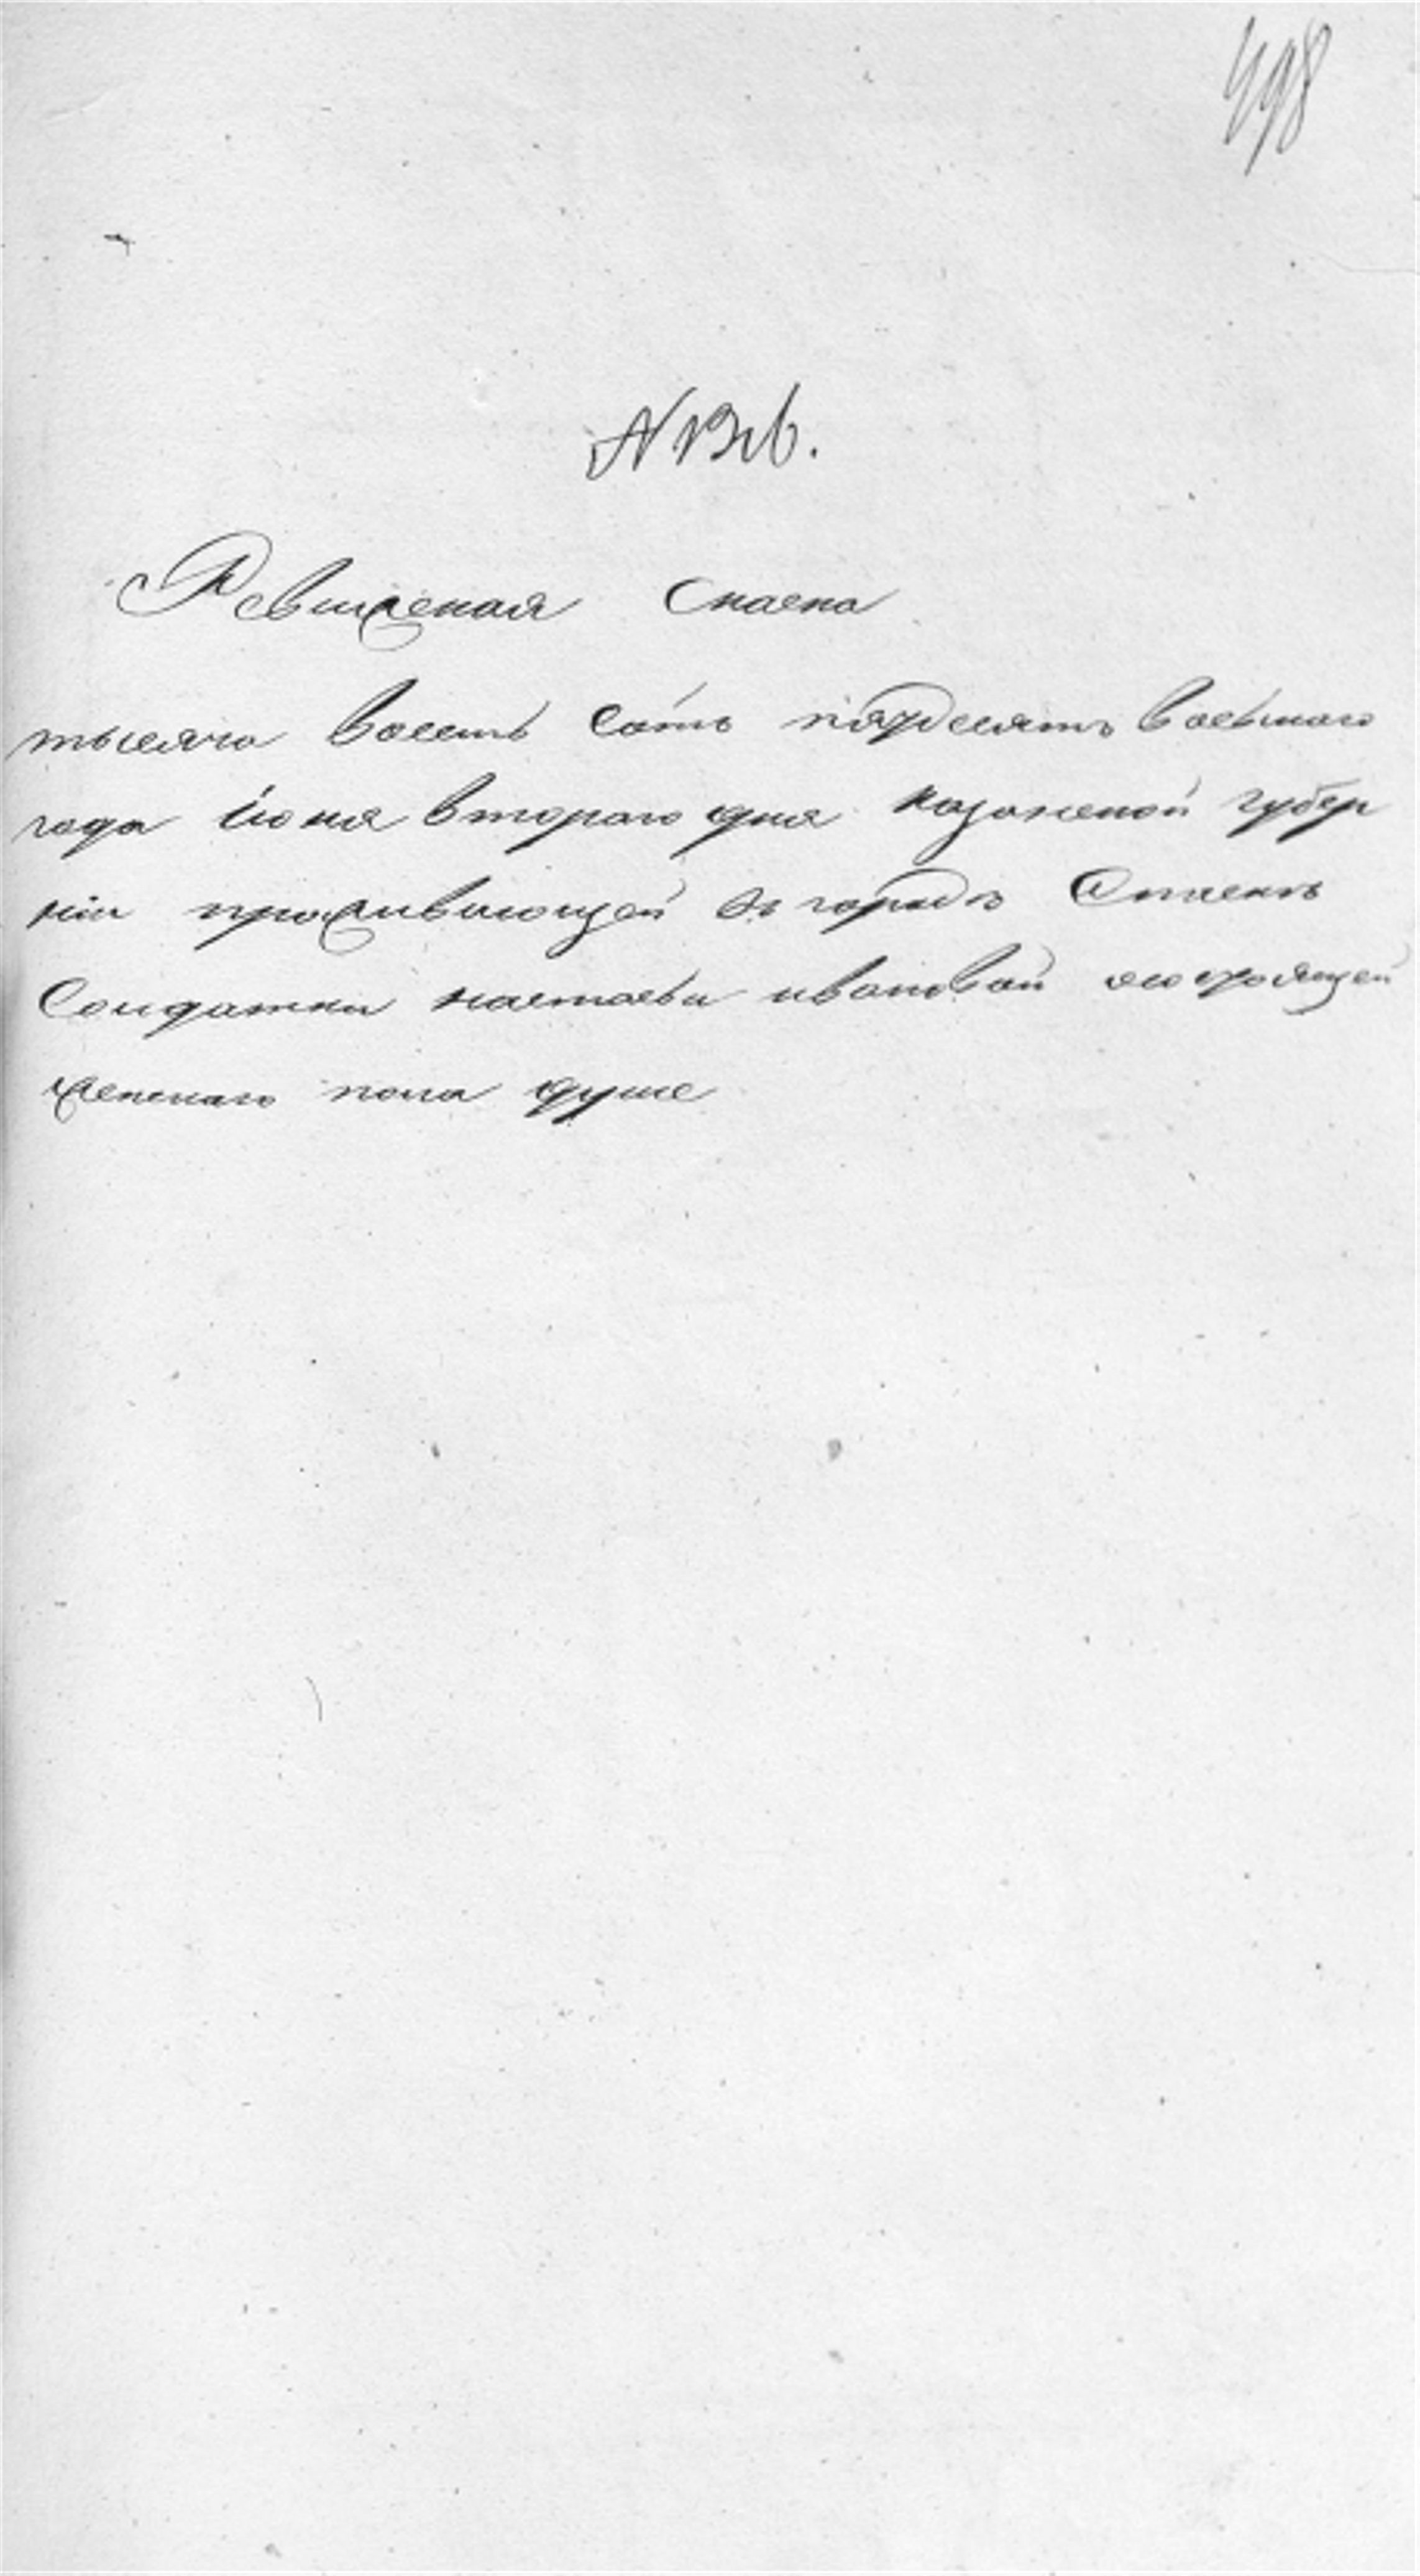 498
N 136.
Ревижская Скаска
тысяча восемь сотъ пядесятъ восьмаго
года Июня втораго дня казанской губер
нiи проживающей въ городѣ Спаскѣ
Солдатки настасьи ивановой
женскаго пола душе